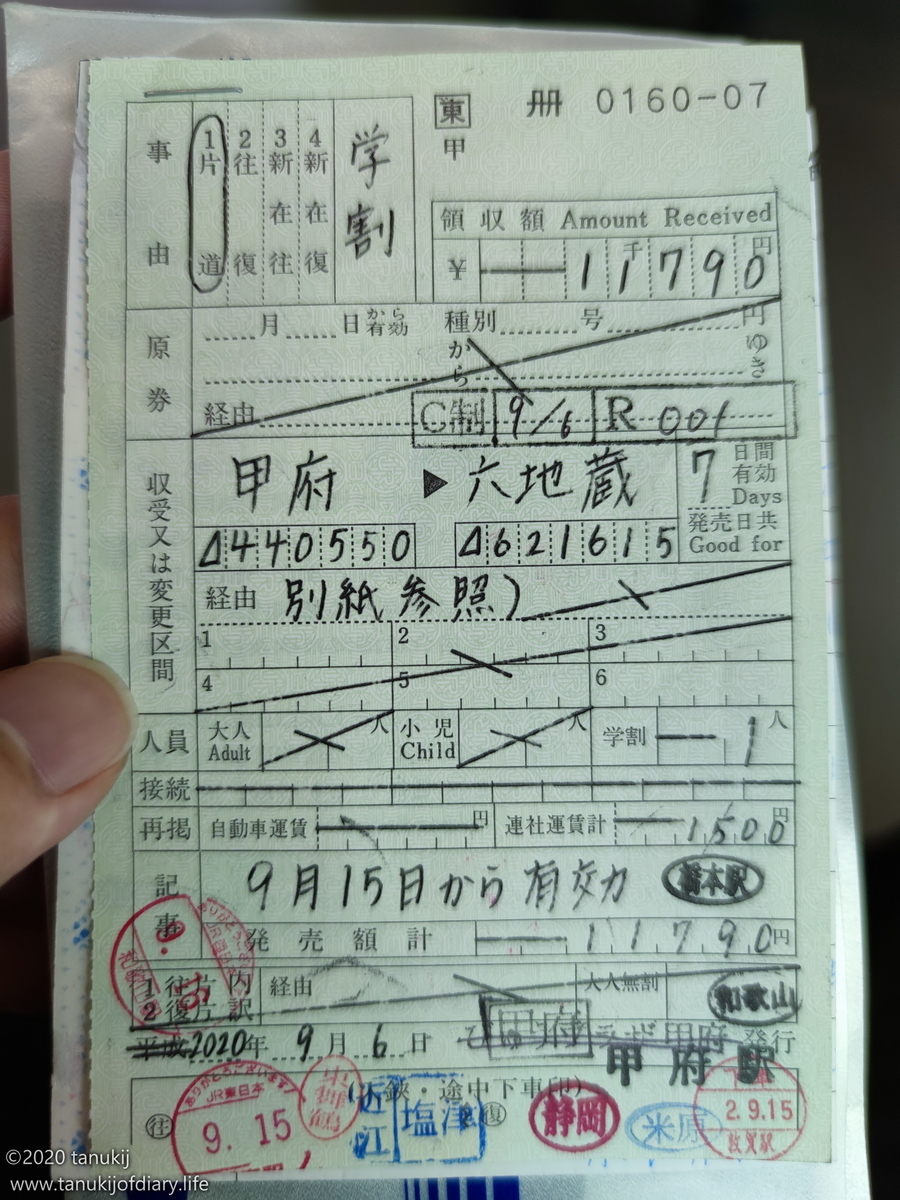 東 冊 0160-07
甲
事由
1片道
2往復
3新在往
4新在復
学割
領収額 Amount Received
¥ 11千790円
原券
月 日から有効 種別 号 円
から ゆき
経由
C制 9/6 R 001
収受又は変更区間
甲府 ▶ 六地蔵
7日間有効 Days
発売日共 Good for
⊿440550 ⊿621615
経由 別紙参照)
1 2 3
4 5 6
人員 大人 Adult 人 小児 Child 人 学割 1人
接続
再掲 自動車運賃 円 連社運賃計 1500円
記事
9月15日から有効 橋本駅
発売額計 11790円
1往片 内
2復片 訳
経由 大人無割 和歌山
平成2020年 9月6日 甲府 甲府 発行
甲府駅
鋏・途中下車印)
往 復
ありがとうございます
JR東日本
9. 15
東舞鶴
近江塩津
静岡
米原
下車
2. 9.15
敦賀駅
©2020 tanukij
www.tanukijofdiary.life